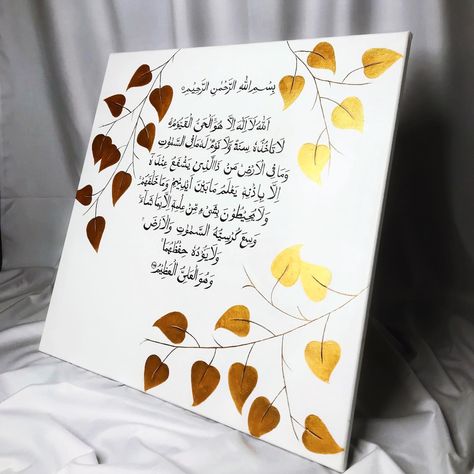 بِسْمِ اللهِ الرَّحْمٰنِ الرَّحِيْمِ
اَللهُ لَا اِلٰهَ اِلَّا هُوَ الْحَيُّ الْقَيُّوْمُ
لَا تَأْخُذُهٗ سِنَةٌ وَّلَا نَوْمٌ لَهٗ مَا فِى السَّمٰوٰتِ
وَمَا فِى الْاَرْضِ مَنْ ذَا الَّذِيْ يَشْفَعُ عِنْدَهٗ
اِلَّا بِاِذْنِهٖ يَعْلَمُ مَا بَيْنَ اَيْدِيْهِمْ وَمَا خَلْفَهُمْ
وَلَا يُحِيْطُوْنَ بِشَيْءٍ مِّنْ عِلْمِهٖ اِلَّا بِمَا شَاءَ
وَسِعَ كُرْسِيُّهُ السَّمٰوٰتِ وَالْاَرْضَ
وَلَا يَؤُدُهٗ حِفْظُهُمَا
وَهُوَ الْعَلِيُّ الْعَظِيْمُ